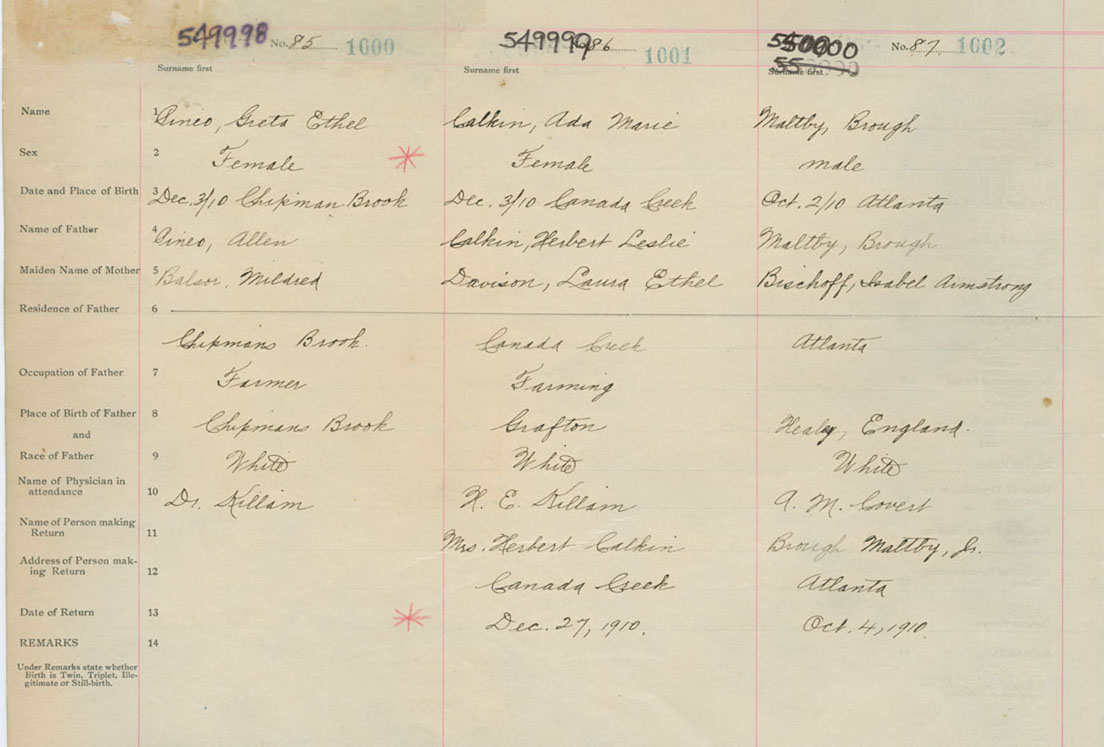 549998 No. 85 1000 549999 86 1001 550000 No. 87 1002
Surname first Surname first Surname first
Name 1 Pineo, Greta Ethel Calkin, Ada Marie Maltby, Brough
Sex 2 Female Female male
Date and Place of Birth 3 Dec. 3/10 Chipman Brook Dec. 3/10 Canada Creek Oct. 2/10 Atlanta
Name of Father 4 Pineo, Allen Calkin, Herbert Leslie Maltby, Brough
Maiden Name of Mother 5 Balsor, Mildred Davison, Laura Ethel Bischoff, Isabel Armstrong
Residence of Father 6
Chipmans Brook. Canada Creek Atlanta
Occupation of Father 7 Farmer Farming
Place of Birth of Father 8 Chipmans Brook Grafton England.
and
Race of Father 9 White White White
Name of Physician in
attendance 10 Dr. Killam H. E. Killam A. M. Covert
Name of Person making
Return 11 Mrs. Herbert Calkin Brough Maltby, Jr.
Address of Person mak-
ing Return 12 Canada Creek Atlanta
Date of Return 13 Dec. 27, 1910. Oct. 4, 1910.
REMARKS 14
Under Remarks state whether
Birth is Twin, Triplet, Ille-
gitimate or Still-birth.